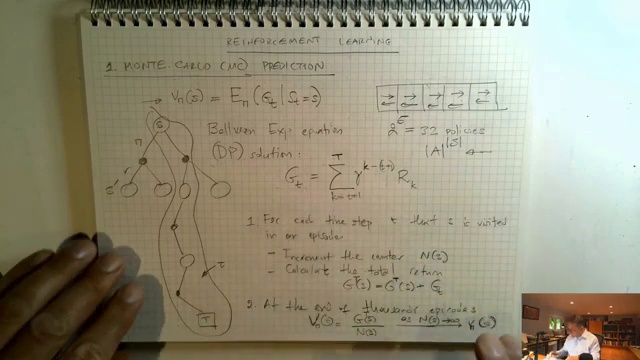 REINFORCEMENT LEARNING
1. MONTE-CARLO (MC) PREDICTION
→ Vπ(s) = Eπ(Gt | St = s)
→ → → → →
Bellman Exp. equation
(DP) solution:
2^5 = 32 policies
|A|^|S| ←
Gt = Σ_{k=t+1}^{T} γ^{k-(t+1)} Rk
S
π
r
s'
τ
T
1. For each time step t that s is visited
in an episode
- Increment the counter N(s)
- Calculate the total return
G^T(s) = G^T(s) + Gt
2. At the end of thousands episodes
Vπ(s) = G(s) / N(s) as N(s) → ∞ Vπ(s)